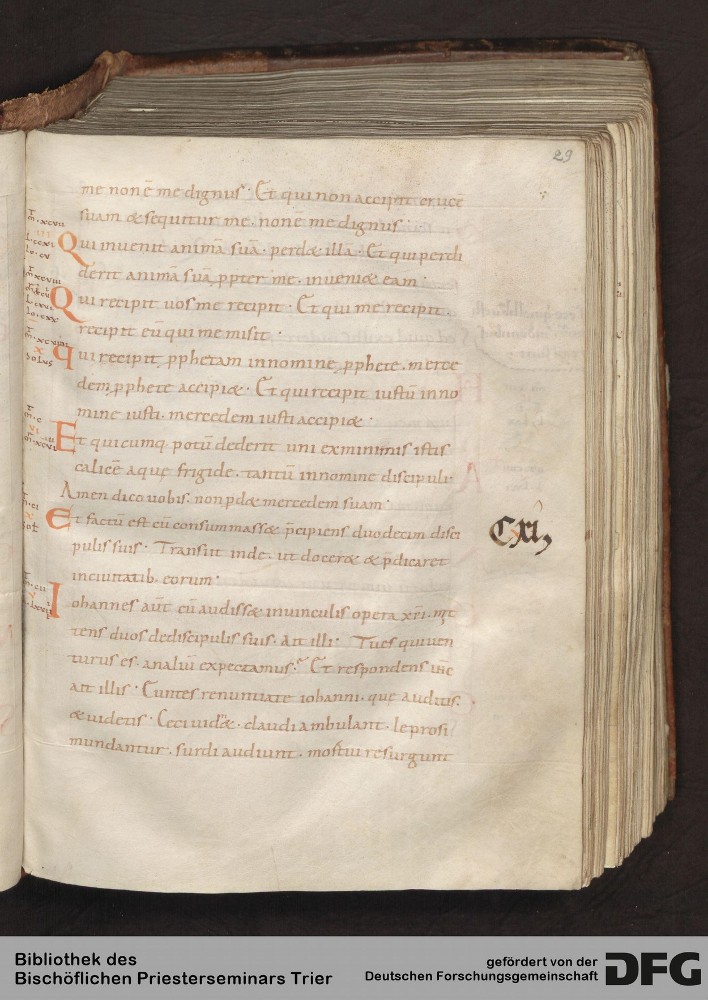 29
me non ē me dignus · Et qui non accipit crucē
suam & sequitur me · non ē me dignus ·
Qui inuenit animā suā · perd& illā · Et qui perdi
derit animā suā ꝓpter me · inueni& eam ·
Qui recipit uos me recipit · Et qui me recipit ·
recipit eū qui me misit ·
qui recipit ꝓph&am in nomine ꝓphete · merce
dem ꝓphete accipi& · Et qui recipit iustū in no
mine iusti · mercedem iusti accipi& ·
Et quicumq; potū dederit uni ex minimis istis
calicē aquę frigidę · tantū in nomine discipuli ·
Amen dico uobis · non p̄d& mercedem suam ·
Et factū est cū consummass& p̄cipiens duodecim disci
pulis suis · Transiit inde · ut docer& & p̄dicaret
in ciuitatib; eorum ·
CXI
Iohannes aūt cū audiss& in uinculis opera xp̄i · mit
tens duos de discipulis suis · Ait illi · Tu es qui uen
turus es · an aliū expectamus · Et respondens ih̄c
ait illis · Euntes renuntiate iohanni · quę auditis ·
& uidetis · Ceci uid& · claudi ambulant · leprosi
mundantur · surdi audiunt · mortui resurgunt
Bibliothek des
Bischöflichen Priesterseminars Trier
gefördert von der
Deutschen Forschungsgemeinschaft
DFG